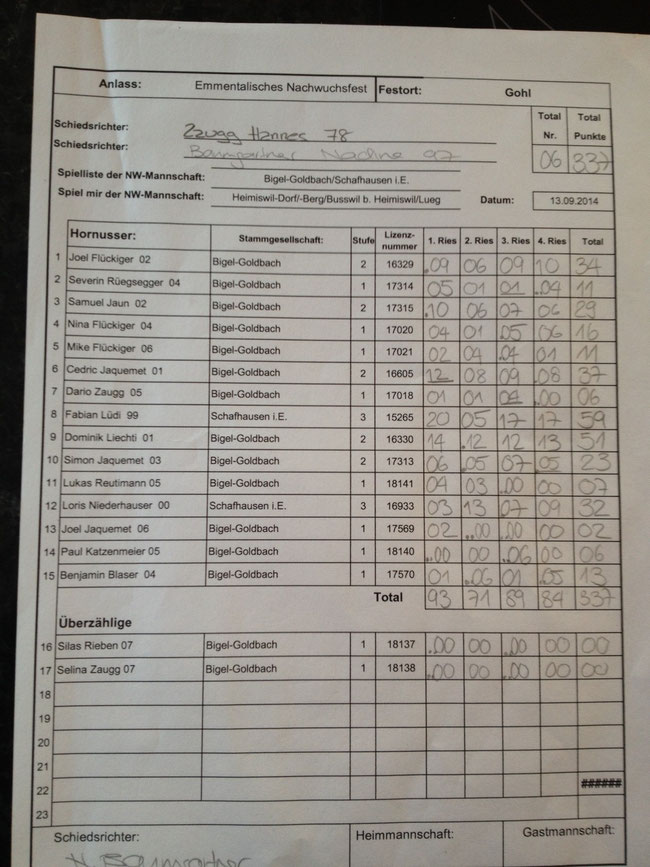 Anlass: Emmentalisches Nachwuchsfest Festort: Gohl
Total Total
Schiedsrichter: Zzugg Hannes 78 Nr. Punkte
Schiedsrichter: Baumgartner Nadine 97 06 337
Spielliste der NW-Mannschaft: Bigel-Goldbach/Schafhausen i.E.
Spiel mir der NW-Mannschaft: Heimiswil-Dorf/-Berg/Busswil b. Heimiswil/Lueg Datum: 13.09.2014
Hornusser: Stammgesellschaft: Stufe Lizenz-nummer 1. Ries 2. Ries 3. Ries 4. Ries Total
1 Joel Flückiger 02 Bigel-Goldbach 2 16329 .09 06 09 10 34
2 Severin Rüegsegger 04 Bigel-Goldbach 1 17314 05 01 01 .04 11
3 Samuel Jaun 02 Bigel-Goldbach 2 17315 .10 06 07 06 29
4 Nina Flückiger 04 Bigel-Goldbach 1 17020 04 01 .05 06 16
5 Mike Flückiger 06 Bigel-Goldbach 1 17021 02 04 .04 01 11
6 Cedric Jaquemet 01 Bigel-Goldbach 2 16605 12 08 09 .08 37
7 Dario Zaugg 05 Bigel-Goldbach 1 17018 01 01 04 .00 06
8 Fabian Lüdi 99 Schafhausen i.E. 3 15265 20 05 17 17 59
9 Dominik Liechti 01 Bigel-Goldbach 2 16330 14 .12 12 13 51
10 Simon Jaquemet 03 Bigel-Goldbach 2 17313 06 .05 07 .05 23
11 Lukas Reutimann 05 Bigel-Goldbach 1 18141 04 03 .00 00 07
12 Loris Niederhauser 00 Schafhausen i.E. 3 16933 03 13 07 09 32
13 Joel Jaquemet 06 Bigel-Goldbach 1 17569 02 ..00 .00 00 02
14 Paul Katzenmeier 05 Bigel-Goldbach 1 18140 ..00 00 .06 00 06
15 Benjamin Blaser 04 Bigel-Goldbach 1 17570 01 .06 01 .05 13
Total 93 71 89 84 337
Überzählige
16 Silas Rieben 07 Bigel-Goldbach 1 18137 .00 00 .00 00 00
17 Selina Zaugg 07 Bigel-Goldbach 1 18138 .00 00 .00 00 00
18
19
20
21
22 ######
23
Schiedsrichter: Heimmannschaft: Gastmannschaft:
N. Baumgartner